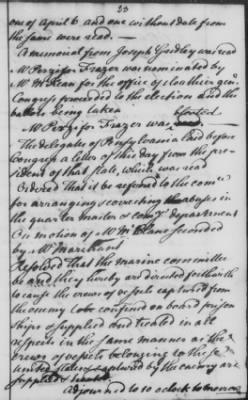 23
one of April 6 and one without date from
the same were read. —
A memorial from Joseph Gridley was read
Mr Persifor Frazer was nominated by
Mr McKean for the office of clothier genl
Congress proceeded to the election and the
ballots being taken
elected
Mr Persifor Frazer was
The delegates of Pensylvania laid before
Congress a letter of this day from the pre-
sident of that state, which was read
Ordered That it be referred to the comee
for arranging & correcting the abuses in
the quarter master & comy department
On motion of Mr McLane seconded
by Mr Marchant
Resolved that the marine committee
be and they hereby are directed forthwith
to cause the crews of vessels captured from
the enemy to be confined on board prison
ships & supplied and treated in all
respects in the same manner as the
crews of vessels belonging to these
united states captured by the enemy are
supplied & treated.
Adjourned to 10 o clock to morrow